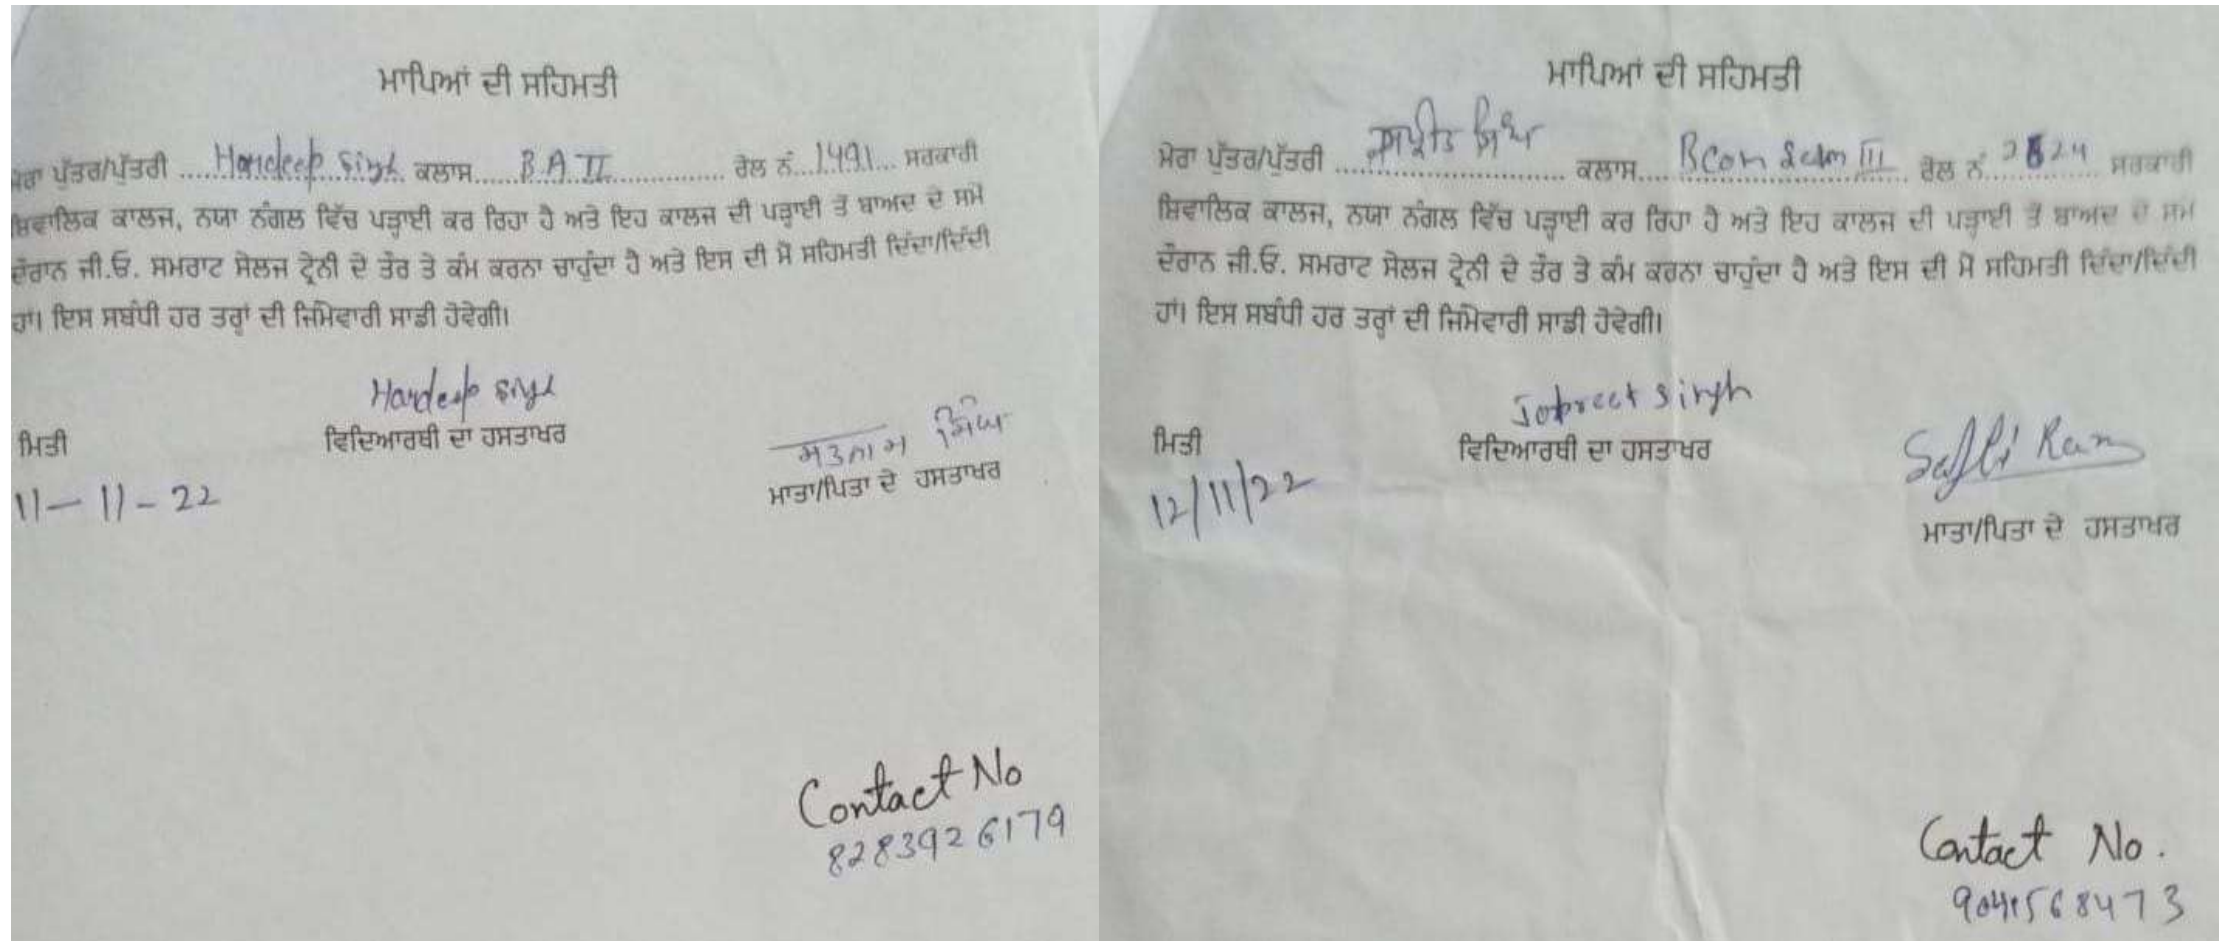 ਮਾਪਿਆਂ ਦੀ ਸਹਿਮਤੀ
ਮੇਰਾ ਪੁੱਤਰ/ਪੁੱਤਰੀ ......Hardeep Singh.. ਕਲਾਸ......B.A II................ ਰੋਲ ਨੰ...1491... ਸਰਕਾਰੀ
ਸ਼ਿਵਾਲਿਕ ਕਾਲਜ, ਨਯਾ ਨੰਗਲ ਵਿੱਚ ਪੜ੍ਹਾਈ ਕਰ ਰਿਹਾ ਹੈ ਅਤੇ ਇਹ ਕਾਲਜ ਦੀ ਪੜ੍ਹਾਈ ਤੋਂ ਬਾਅਦ ਦੇ ਸਮੇਂ
ਦੌਰਾਨ ਜੀ.ਓ. ਸਮਰਾਟ ਸੇਲਜ ਟ੍ਰੇਨੀ ਦੇ ਤੌਰ ਤੇ ਕੰਮ ਕਰਨਾ ਚਾਹੁੰਦਾ ਹੈ ਅਤੇ ਇਸ ਦੀ ਮੈਂ ਸਹਿਮਤੀ ਦਿੰਦਾ/ਦਿੰਦੀ
ਹਾਂ। ਇਸ ਸਬੰਧੀ ਹਰ ਤਰ੍ਹਾਂ ਦੀ ਜਿੰਮੇਵਾਰੀ ਸਾਡੀ ਹੋਵੇਗੀ।
Hardeep Singh
ਸਤਨਾਮ ਸਿੰਘ
ਮਿਤੀ ਵਿਦਿਆਰਥੀ ਦਾ ਹਸਤਾਖਰ
ਮਾਤਾ/ਪਿਤਾ ਦੇ ਹਸਤਾਖਰ
11-11-22
Contact No
8283926179
ਮਾਪਿਆਂ ਦੀ ਸਹਿਮਤੀ
ਮੇਰਾ ਪੁੱਤਰ/ਪੁੱਤਰੀ ............ ਸਿੰਘ ਕਲਾਸ....BCom Sem III.. ਰੋਲ ਨੰ. ਸਰਕਾਰੀ
ਸ਼ਿਵਾਲਿਕ ਕਾਲਜ, ਨਯਾ ਨੰਗਲ ਵਿੱਚ ਪੜ੍ਹਾਈ ਕਰ ਰਿਹਾ ਹੈ ਅਤੇ ਇਹ ਕਾਲਜ ਦੀ ਪੜ੍ਹਾਈ ਤੋਂ ਬਾਅਦ ਦੇ ਸਮੇਂ
ਦੌਰਾਨ ਜੀ.ਓ. ਸਮਰਾਟ ਸੇਲਜ ਟ੍ਰੇਨੀ ਦੇ ਤੌਰ ਤੇ ਕੰਮ ਕਰਨਾ ਚਾਹੁੰਦਾ ਹੈ ਅਤੇ ਇਸ ਦੀ ਮੈਂ ਸਹਿਮਤੀ ਦਿੰਦਾ/ਦਿੰਦੀ
ਹਾਂ। ਇਸ ਸਬੰਧੀ ਹਰ ਤਰ੍ਹਾਂ ਦੀ ਜਿੰਮੇਵਾਰੀ ਸਾਡੀ ਹੋਵੇਗੀ।
Singh
Ram
ਮਿਤੀ ਵਿਦਿਆਰਥੀ ਦਾ ਹਸਤਾਖਰ
12/11/22
ਮਾਤਾ/ਪਿਤਾ ਦੇ ਹਸਤਾਖਰ
Contact No.